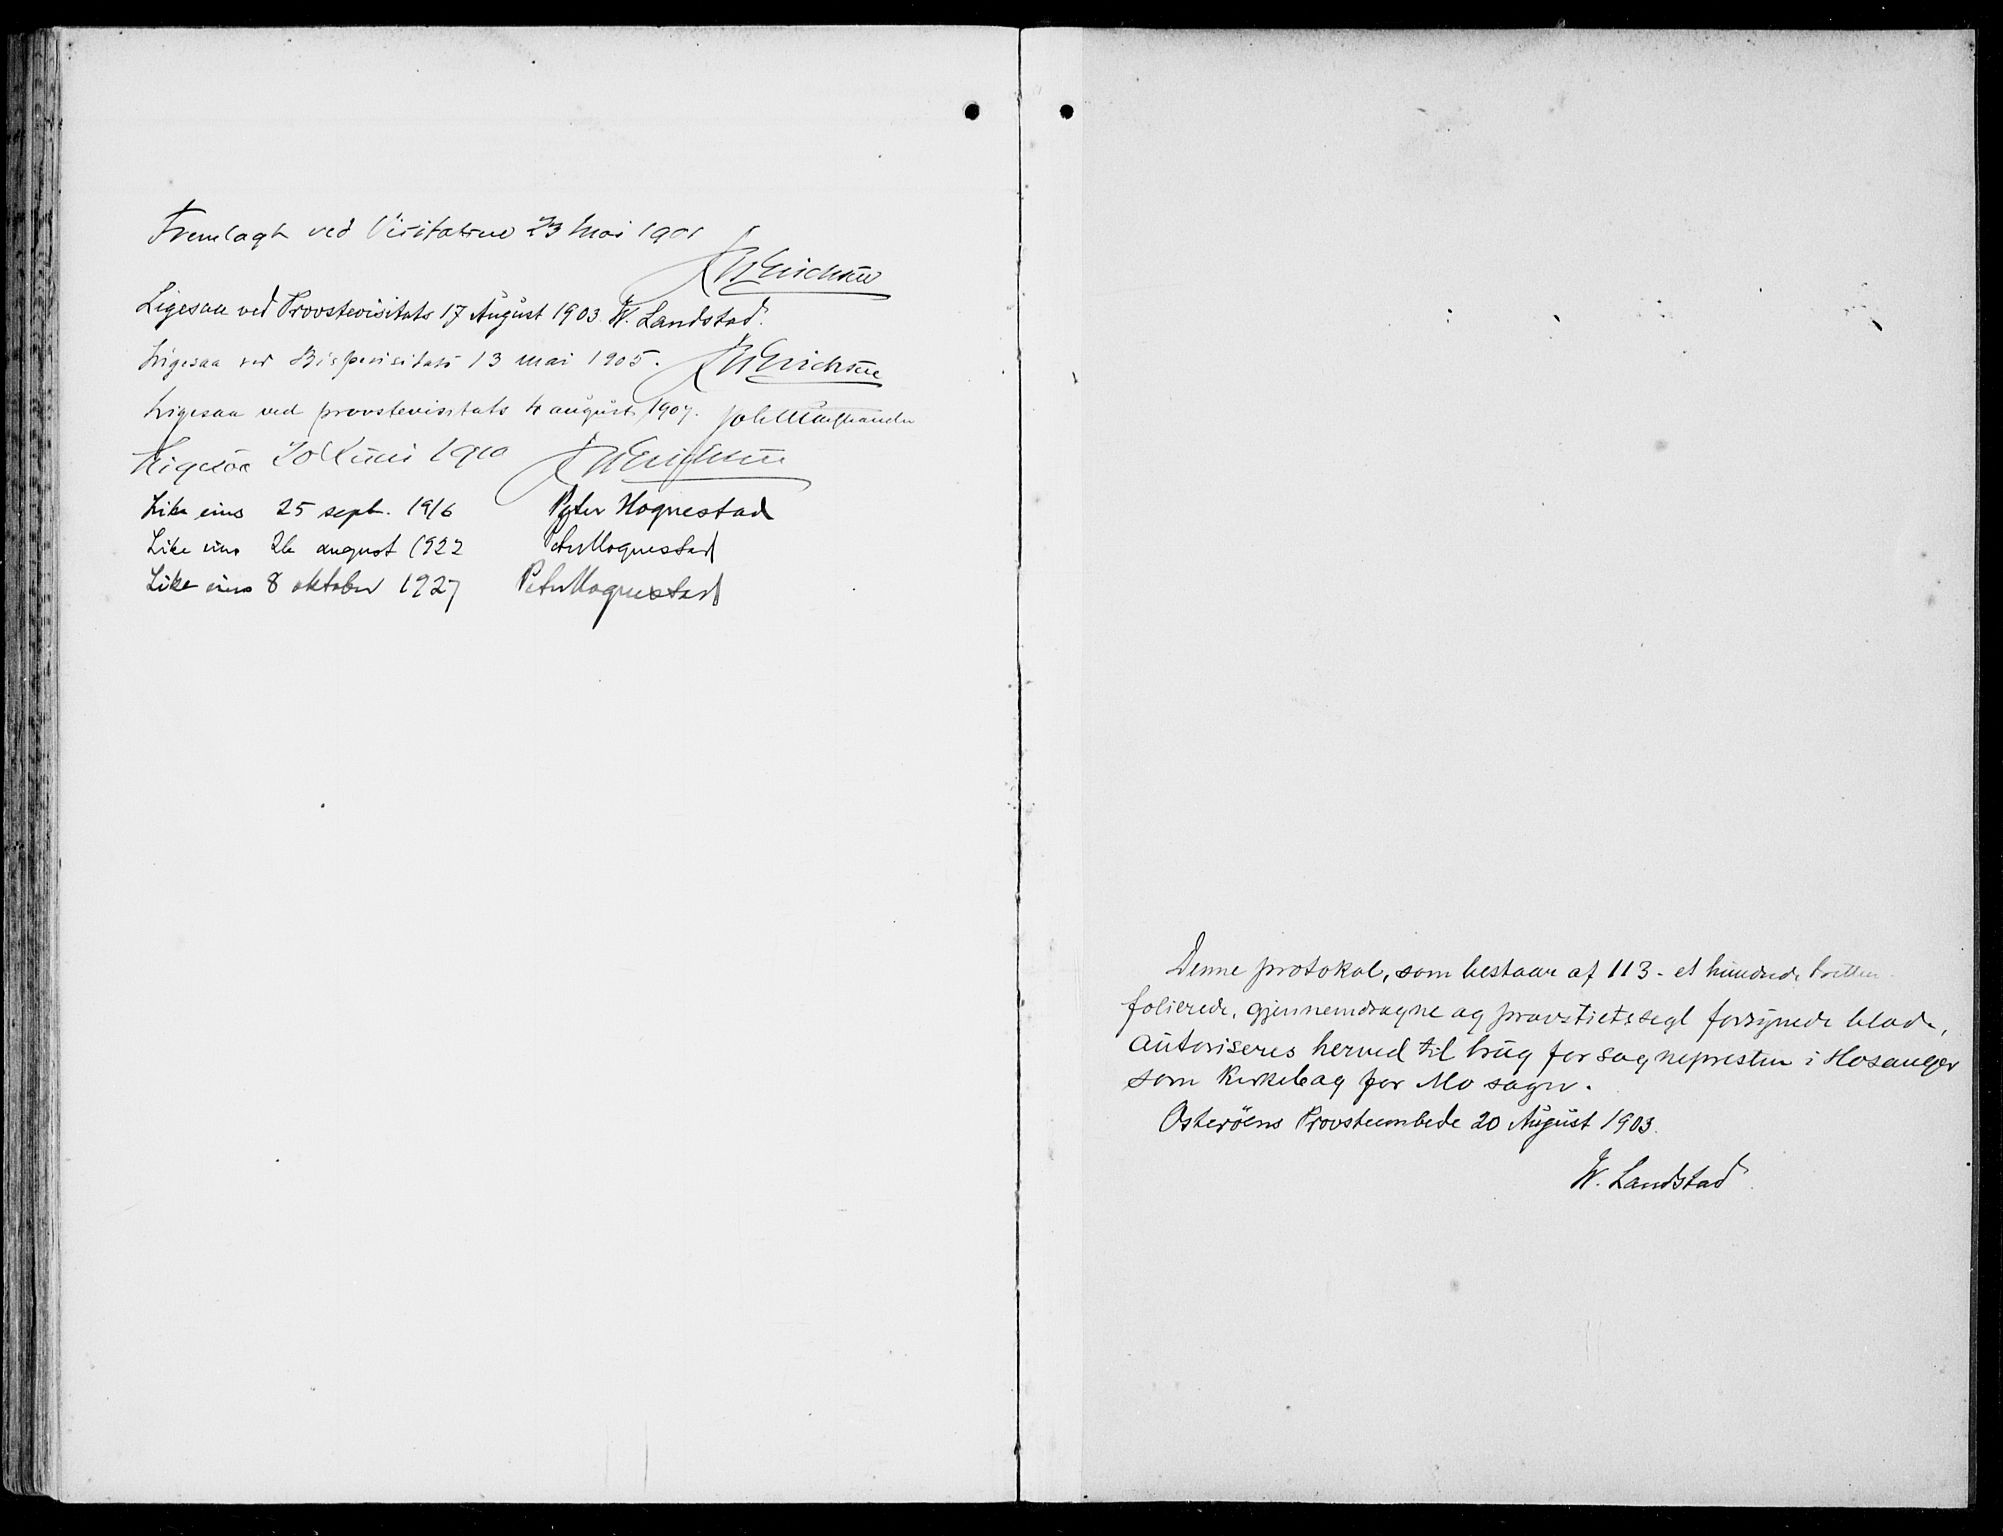 Fremlagt ved Visitatsen 23 Mai 1901
Erichsen
Ligesaa ved Provstevisitats 17 August 1903 W. Landstad.
Ligesaa ved Bispevisitats 13 mai 1905. Erichsen
Ligesaa ved provstevisitats 4 august 1907. Joh
Ligesaa 20 Juni 1910 Erichsen
Like eins 25 sept. 1916 Peter Hognestad
Like eins 26 august 1922 Peter Hognestad
Like eins 8 oktober 1927 Peter Hognestad
Denne protokol, som bestaar af 113 - et hundrede tretten
folierede, gjennemdragne og provstietssegl forsynede blade,
autoriseres herved til brug for sognepresten i Hosanger
som kirkebog for Mo sogn.
Osterøens Provsteembede 20 August 1903.
W. Landstad